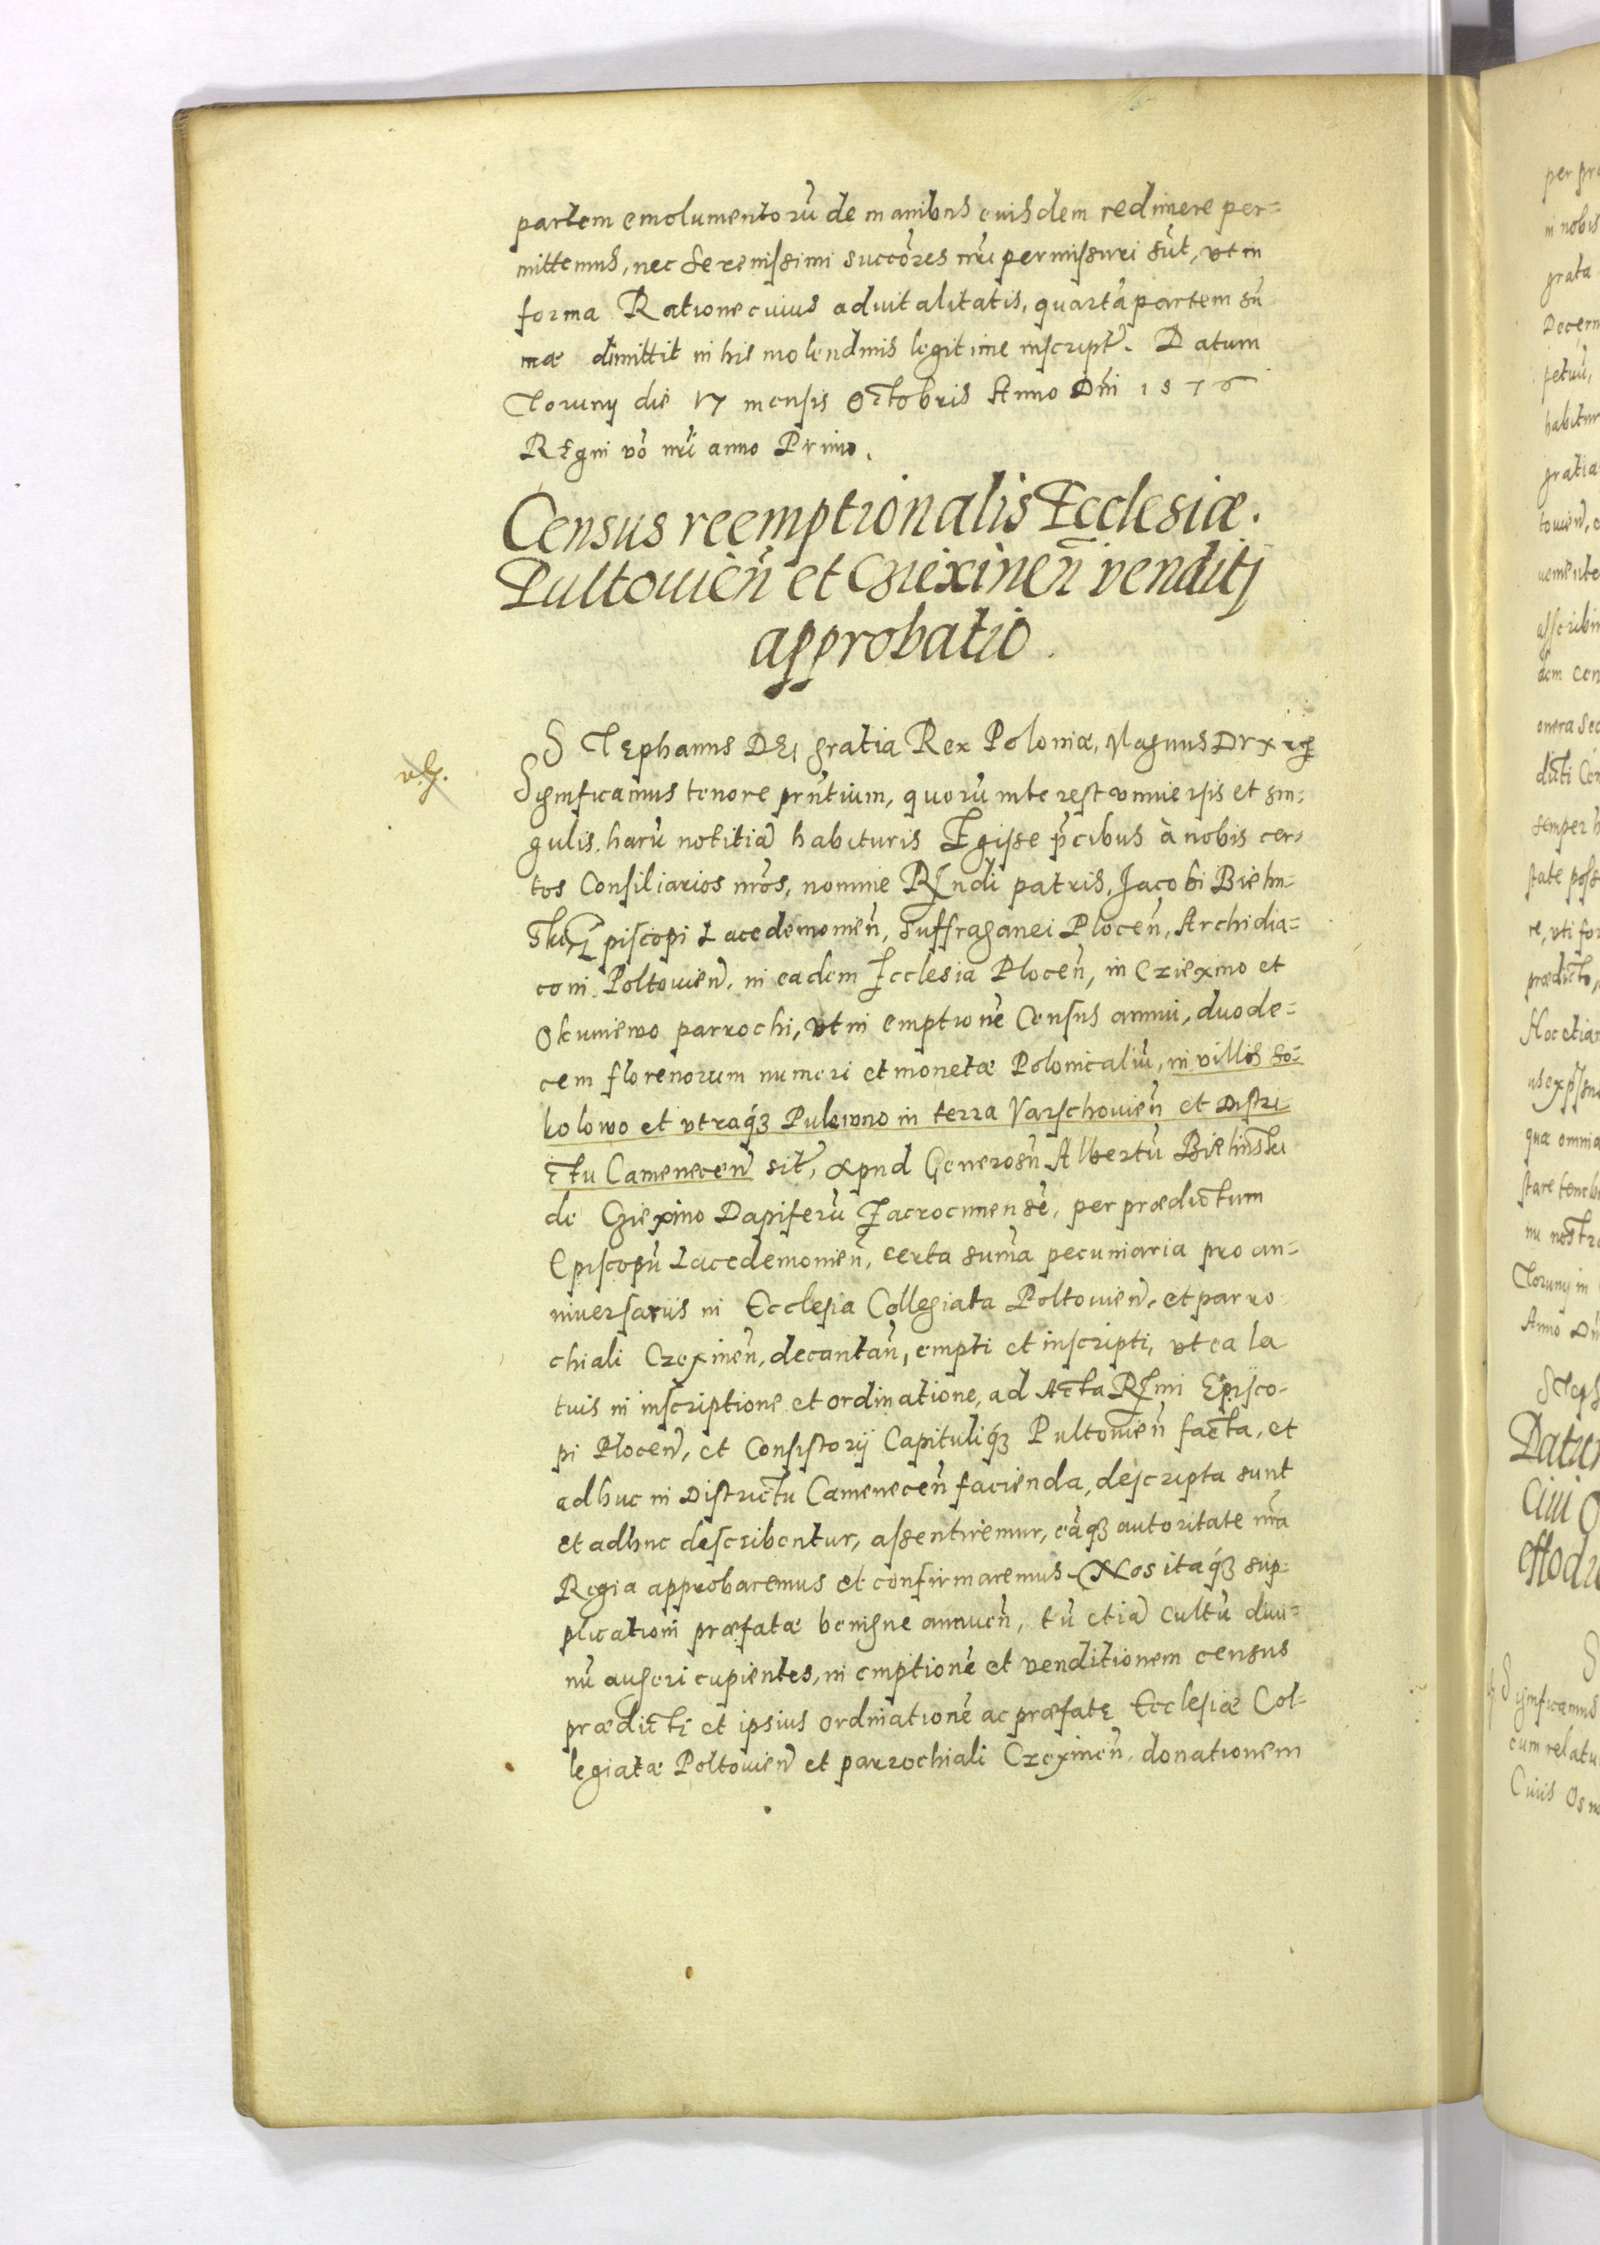 partem emolumentorū de manibus euisdem redimere per=
mittemus, nec Serenissimi succōres nr̄i permissuri sūt, vt in
forma Ratione cuius aduitalitatis, quartā partem sū
mæ dimittit in his molendinis legitime inscript. Datum
Toruny die 17 mensis Octobris Anno Dn̄i 1576
Regni vō nr̄i anno Primo.
Census reemptionalis Ecclesiæ.
Pultouien̄ et Cziexinen̄ venditj
approbatio.
Stephanus DEi gratia Rex Poloniæ, Magnus Dvx
Significamus tenore pn̄tium, quorū interest vniuersis et sin-
gulis harū notitiā habituris Egisse p̄cibus à nobis cer-
tos Consiliarios nr̄os, nomine Rndi patris, Jacobi Bielin-
ski Episcopi Lacedemonien̄, suffraganei Plocen̄, Archidia=
coni Poltouien̄, in eadem Ecclesia Plocen̄, in Cziexino et
Okuniewo parrochi, vt in emptionē Census annui, duode=
cem florenorum numeri et monetæ Polonicaliū, in villis So-
kolowo et vtraq̃3 Pulewno in terra Varschouien̄ et Distri-
ctu Camenecen̄ sit, apud Generosū Albertū Bielinski
de Cziexino Dapiferū Zacrocimensē, per prædictum
Episcopū Lacedemonien̄, certa sum̄a pecuniaria pro an=
niuersariis in Ecclesia Collegiata Poltouien̄, et parro-
chiali Czexinen̄, decantan̄, empti et inscripti, vt ea la
tuis in inscriptione et ordinatione, ad Acta Rmi Episco-
pi Plocen̄, et Consistorij Capituliq̃3 Pultouien̄ facta, et
adhuc in Districtu Camenecen̄ facienda, descripta sunt
et adhuc describentur, assentiremur, eāq3 autoritate nr̄a
Regia approbaremus et confirmaremus. Nos itaq̃3 sup-
plicationi præfatæ benigne annuen̄, tū etiā cultū diui=
nū augeri cupientes, in emptionē et venditionem census
prædicti et ipsius ordinationē ac præfatę Ecclesiæ Col-
legiatæ Poltouien̄ et parrochiali Czexinen̄, donationem